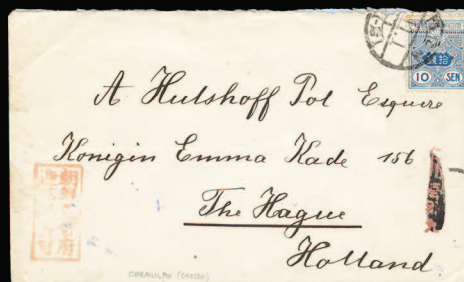 10 SEN
A Hulshoff Pol Esquire
Konigin Emma Kade 156
The Hague
Holland
CHEMULPO (CHOSEN)